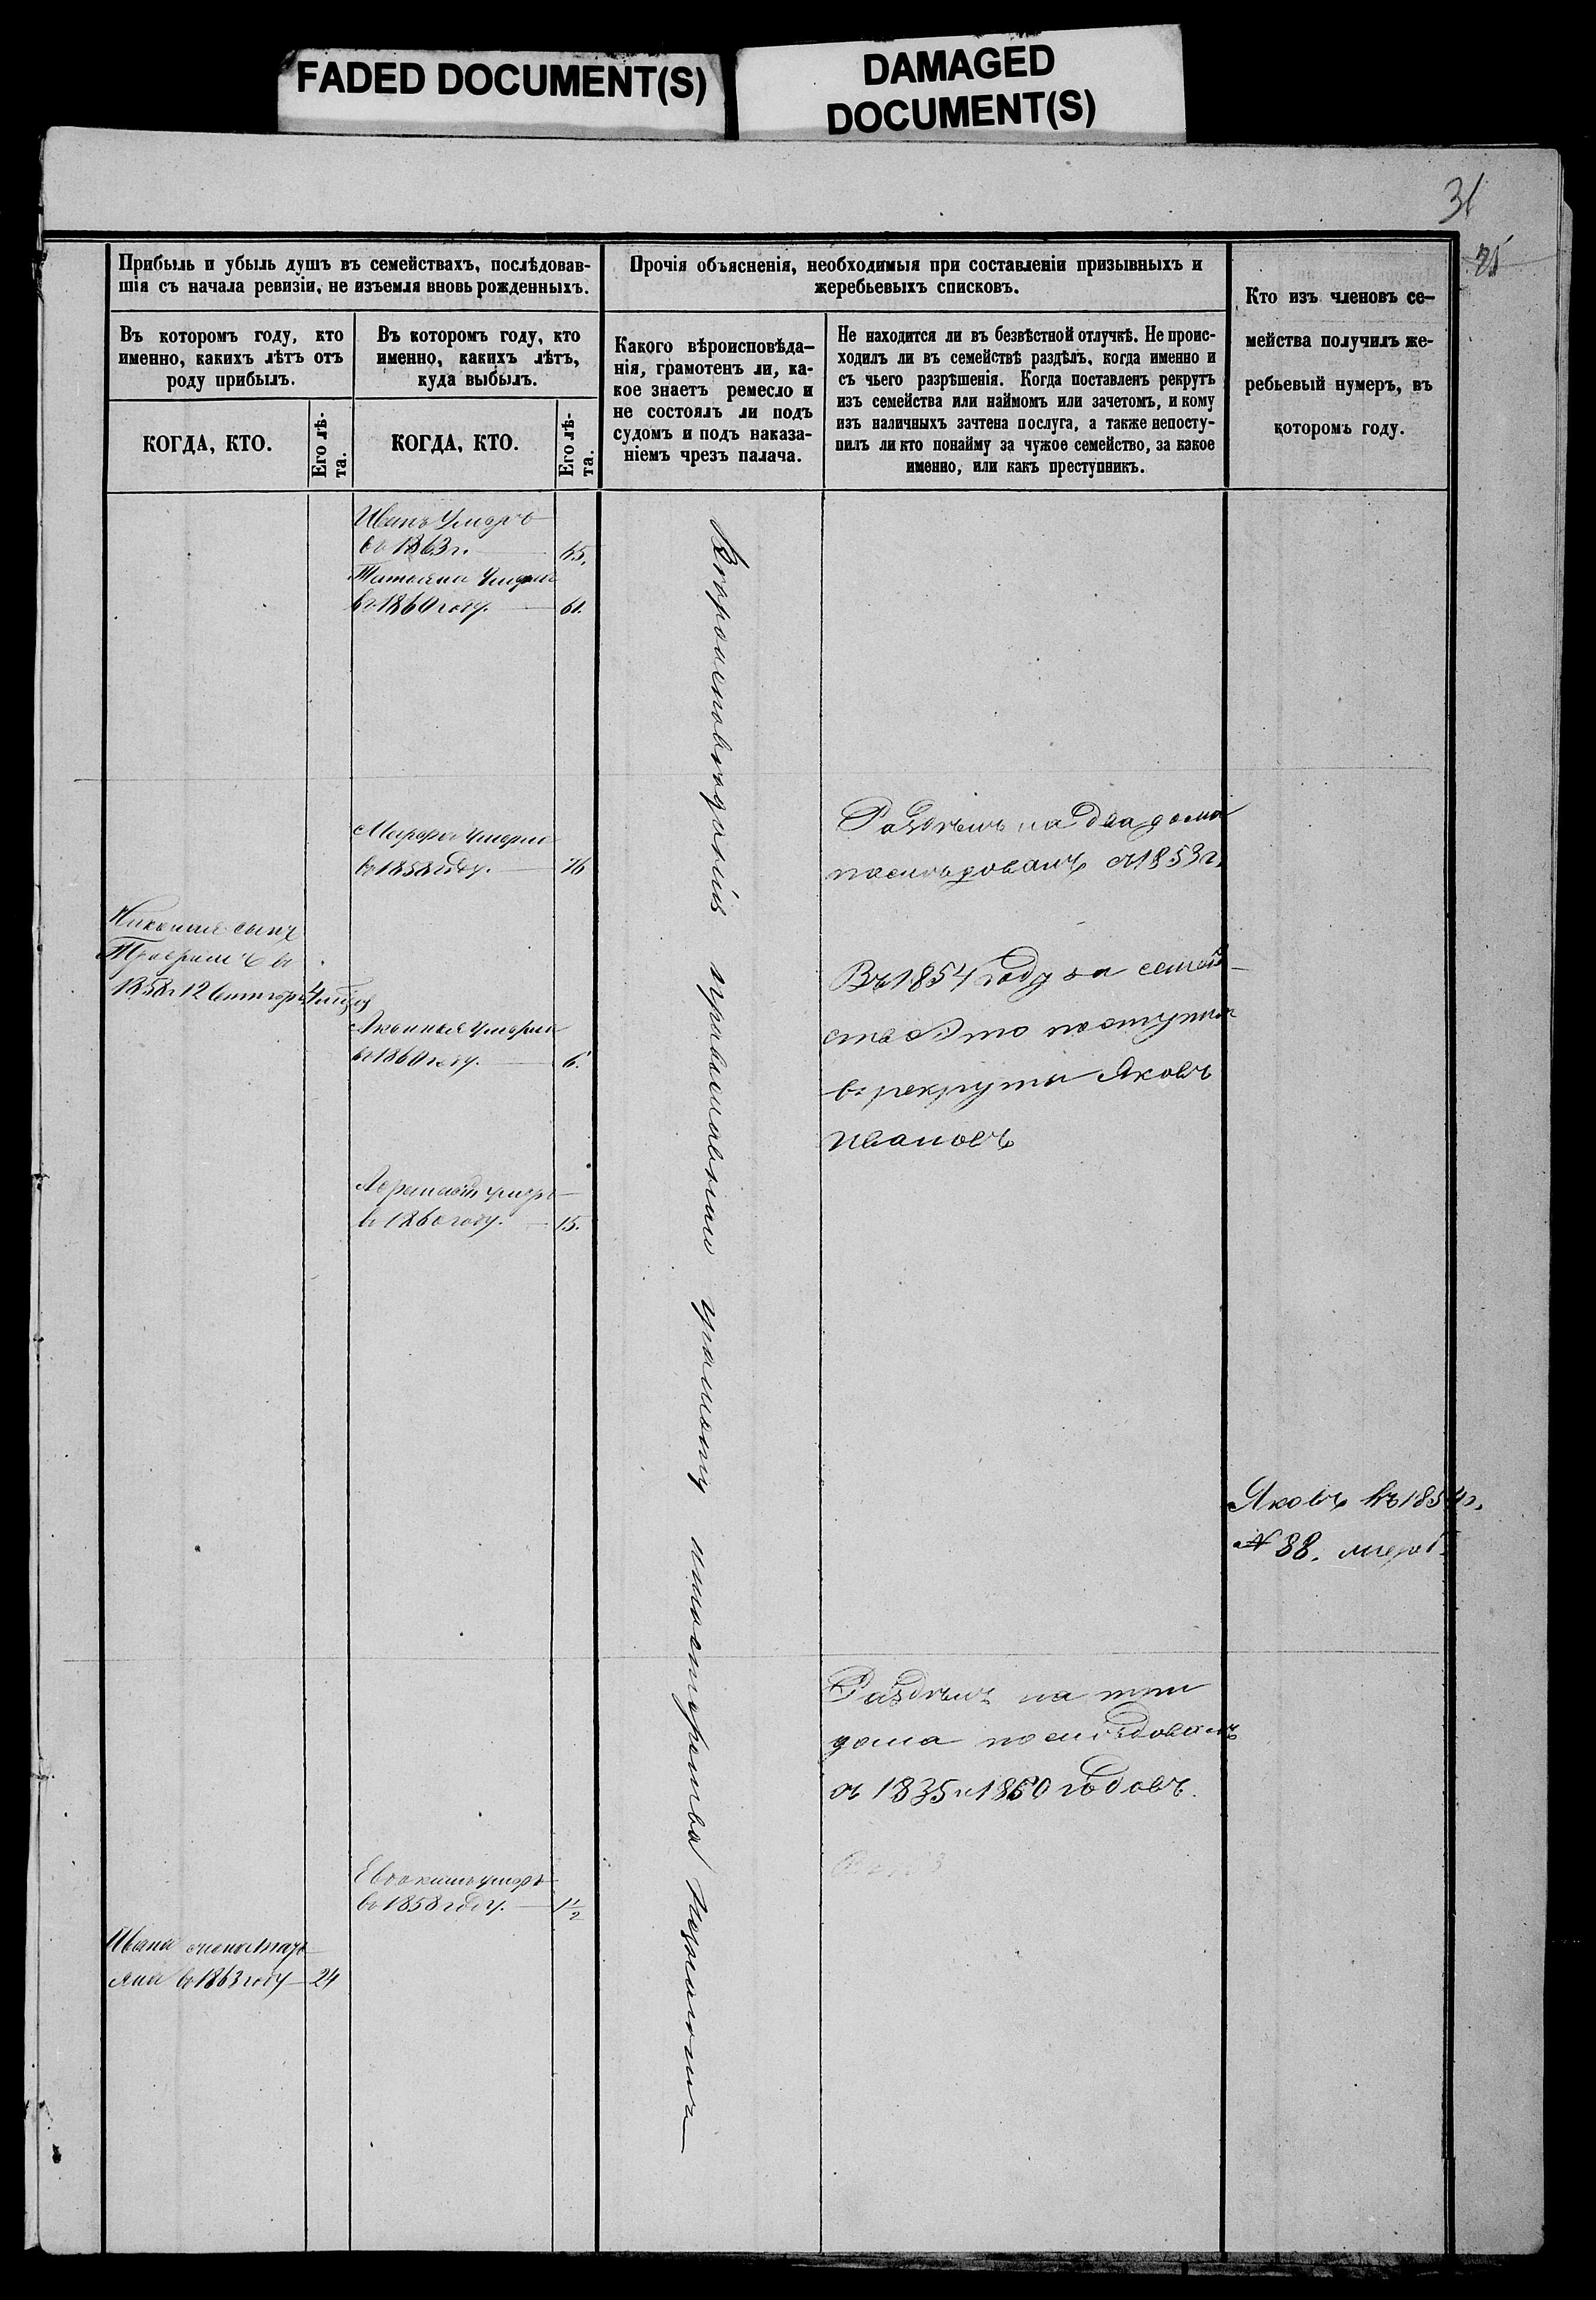 FADED DOCUMENT(S)
DAMAGED
DOCUMENT(S)
31
25
Прибыль и убыль душъ въ семействахъ, послѣдовав-
шія съ начала ревизіи, не изъемля вновь рожденныхъ.
Прочія объясненія, необходимыя при составленіи призывныхъ и
жеребьевыхъ списковъ.
Кто изъ членовъ се-
мейства получилъ же-
ребьевый нумеръ, въ
которомъ году.
Въ которомъ году, кто
именно, какихъ лѣтъ отъ
роду прибылъ.
Въ которомъ году, кто
именно, какихъ лѣтъ,
куда выбылъ.
Какого вѣроисповѣда-
нія, грамотенъ ли, ка-
кое знаетъ ремесло и
не состоялъ ли подъ
судомъ и подъ наказа-
ніемъ чрезъ палача.
Не находится ли въ безвѣстной отлучкѣ. Не проис-
ходилъ ли въ семействѣ раздѣлъ, когда именно и
съ чьего разрѣшенія. Когда поставленъ рекрутъ
изъ семейства или наймомъ или зачетомъ, и кому
изъ наличныхъ зачтена послуга, а также непосту-
пилъ ли кто понайму за чужое семейство, за какое
именно, или какъ преступникъ.
КОГДА, КТО.
Его лѣ-
та.
КОГДА, КТО.
Его лѣ-
та.
Иванъ умеръ
въ 1863 г.
65.
Татьяна умерла
въ 1860 году.
61.
Вѣроисповѣданія православнаго грамоту
Марфа умерла
въ 1858 году.
76
Раздѣлъ на два дома
послѣдовалъ съ 1853 г.
сынъ
въ
1858 г 12
Въ 1854 году за семей-
ство это поступилъ
въ рекруты Яковъ
Ивановъ
умерла
въ 1860 году.
6.
умеръ
въ 1860 году.
15.
Яковъ въ 1854 г.
№ 88.
Раздѣлъ на три
дома послѣдовалъ
съ 1835 и 1860 годовъ.
Евдокимъ умеръ
въ 1858 году.
1 1/2
Ивана жена Марь-
яна въ 1863 году
24